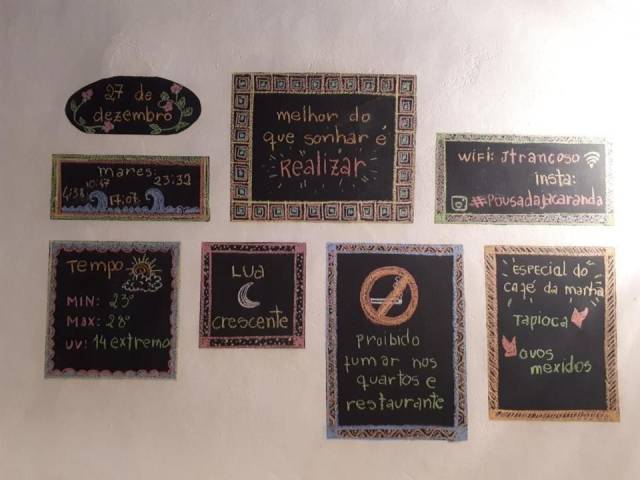 27 de
dezembro
melhor do
que sonhar é
Realizar
marés:
4:38 10:47 23:33
17:07
wifi: Jtrancoso
insta:
#Pousadajacaranda
Tempo
MIN: 23°
MAX: 28°
UV: 14 extremo
LUA
crescente
proibido
fumar nos
quartos e
restaurante
Especial do
café da manhã
Tapioca
ovos
mexidos